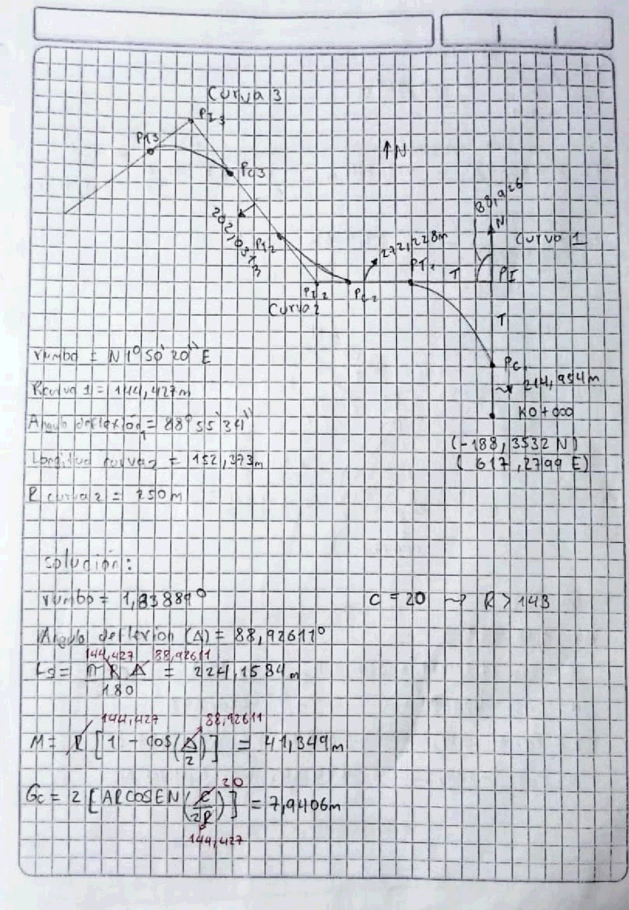 Curva 3
PI3
PT3
PC3
↑N
88,926
N
Curva 1
202,037m
PT2
272,228m
PT1
T
PI
PI2
PC2
Curva 2
T
PC1
214,954m
K0+000
(-188,3532 N)
(617,2799 E)
rumbo = N 1° 50' 20'' E
R curva 1 = 144,427m
Angulo deflexión1 = 88° 55' 34''
Longitud curva2 = 152,373m
R curva 2 = 250 m
solución:
rumbo = 1,83889°
C = 20 → R > 143
Angulo deflexion (Δ) = 88,92611°
144,427 88,92611
Ls = π R Δ / 180 = 224,1584m
144,427 88,92611
M = R [1 - cos(Δ/2)] = 41,349m
20
Gc = 2 [ARCOSEN(C/2R)] = 7,9406m
144,427